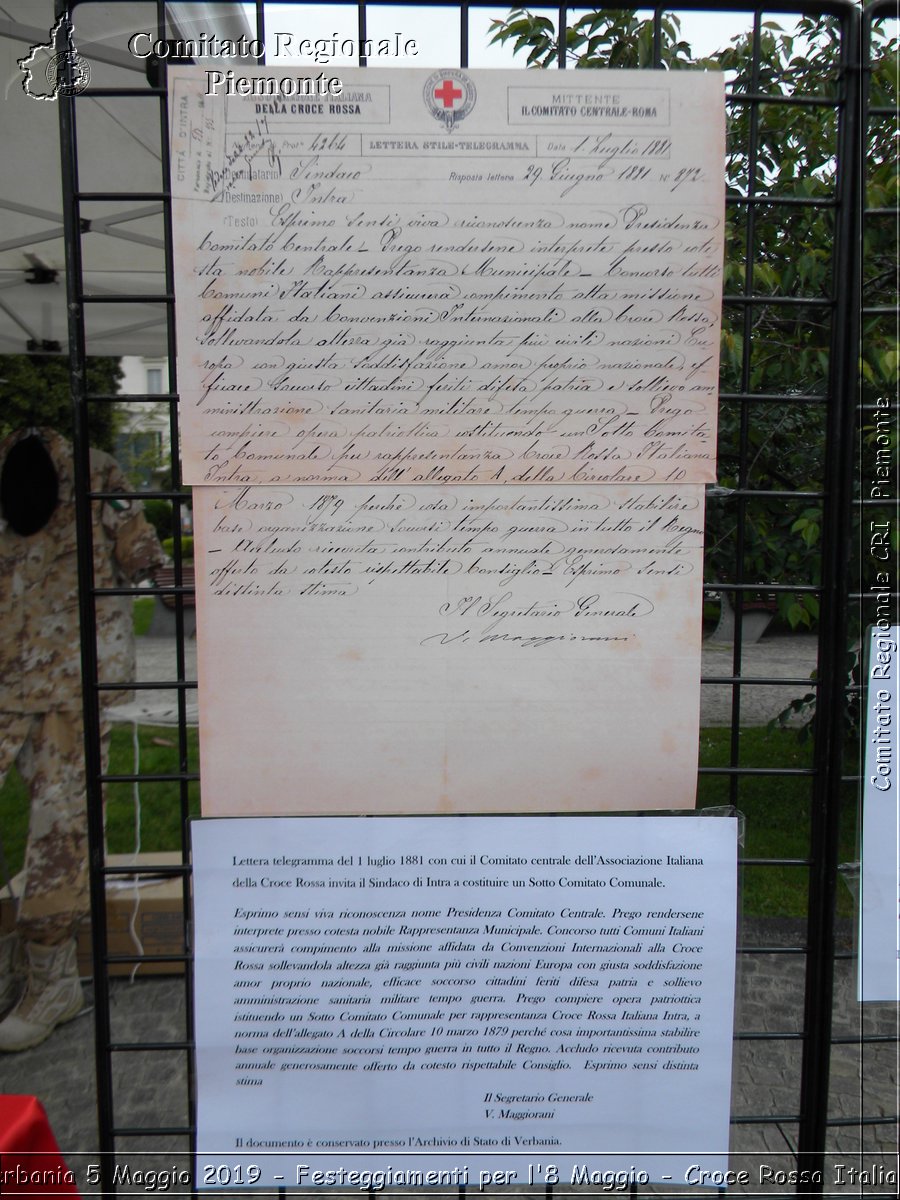 Comitato Regionale
Piemonte
ASSOCIAZIONE ITALIANA
DELLA CROCE ROSSA
MITTENTE
IL COMITATO CENTRALE - ROMA
CITTÀ D'INTRA
Prot° 4264
LETTERA STILE-TELEGRAMMA
Data 1 Luglio 1881
(Destinatario) Sindaco
Risposta lettera 29 Giugno 1881 N° 872
(Destinazione) Intra
(Testo) Esprimo sensi viva riconoscenza nome Presidenza
Comitato Centrale – Prego rendersene interprete presso cote
sta nobile Rappresentanza Municipale – Concorso tutti
Comuni Italiani assicurerà compimento alta missione
affidata da Convenzioni Internazionali alla Croce Rossa,
sollevandola altezza già raggiunta più civili nazioni Eu
ropa con giusta soddisfazione amor proprio nazionale, ef
ficace soccorso cittadini feriti difesa patria e sollievo am
ministrazione sanitaria militare tempo guerra – Prego
compiere opera patriottica costituendo un Sotto Comita
to Comunale per rappresentanza Croce Rossa Italiana
Intra, a norma dell'allegato A, della Circolare 10
Marzo 1879 perchè cosa importantissima stabilire
base organizzazione soccorsi tempo guerra in tutto il Regno
– Accludo ricevuta contributo annuale generosamente
offerto da cotesto rispettabile Consiglio – Esprimo sensi
distinta stima
Il Segretario Generale
V. Maggiorani
Lettera telegramma del 1 luglio 1881 con cui il Comitato centrale dell'Associazione Italiana
della Croce Rossa invita il Sindaco di Intra a costituire un Sotto Comitato Comunale.
Esprimo sensi viva riconoscenza nome Presidenza Comitato Centrale. Prego rendersene
interprete presso cotesta nobile Rappresentanza Municipale. Concorso tutti Comuni Italiani
assicurerà compimento alla missione affidata da Convenzioni Internazionali alla Croce
Rossa sollevandola altezza già raggiunta più civili nazioni Europa con giusta soddisfazione
amor proprio nazionale, efficace soccorso cittadini feriti difesa patria e sollievo
amministrazione sanitaria militare tempo guerra. Prego compiere opera patriottica
istituendo un Sotto Comitato Comunale per rappresentanza Croce Rossa Italiana Intra, a
norma dell'allegato A della Circolare 10 marzo 1879 perché cosa importantissima stabilire
base organizzazione soccorsi tempo guerra in tutto il Regno. Accludo ricevuta contributo
annuale generosamente offerto da cotesto rispettabile Consiglio. Esprimo sensi distinta
stima
Il Segretario Generale
V. Maggiorani
Il documento è conservato presso l'Archivio di Stato di Verbania.
Comitato Regionale CRI Piemonte
erbania 5 Maggio 2019 - Festeggiamenti per l'8 Maggio - Croce Rossa Italia